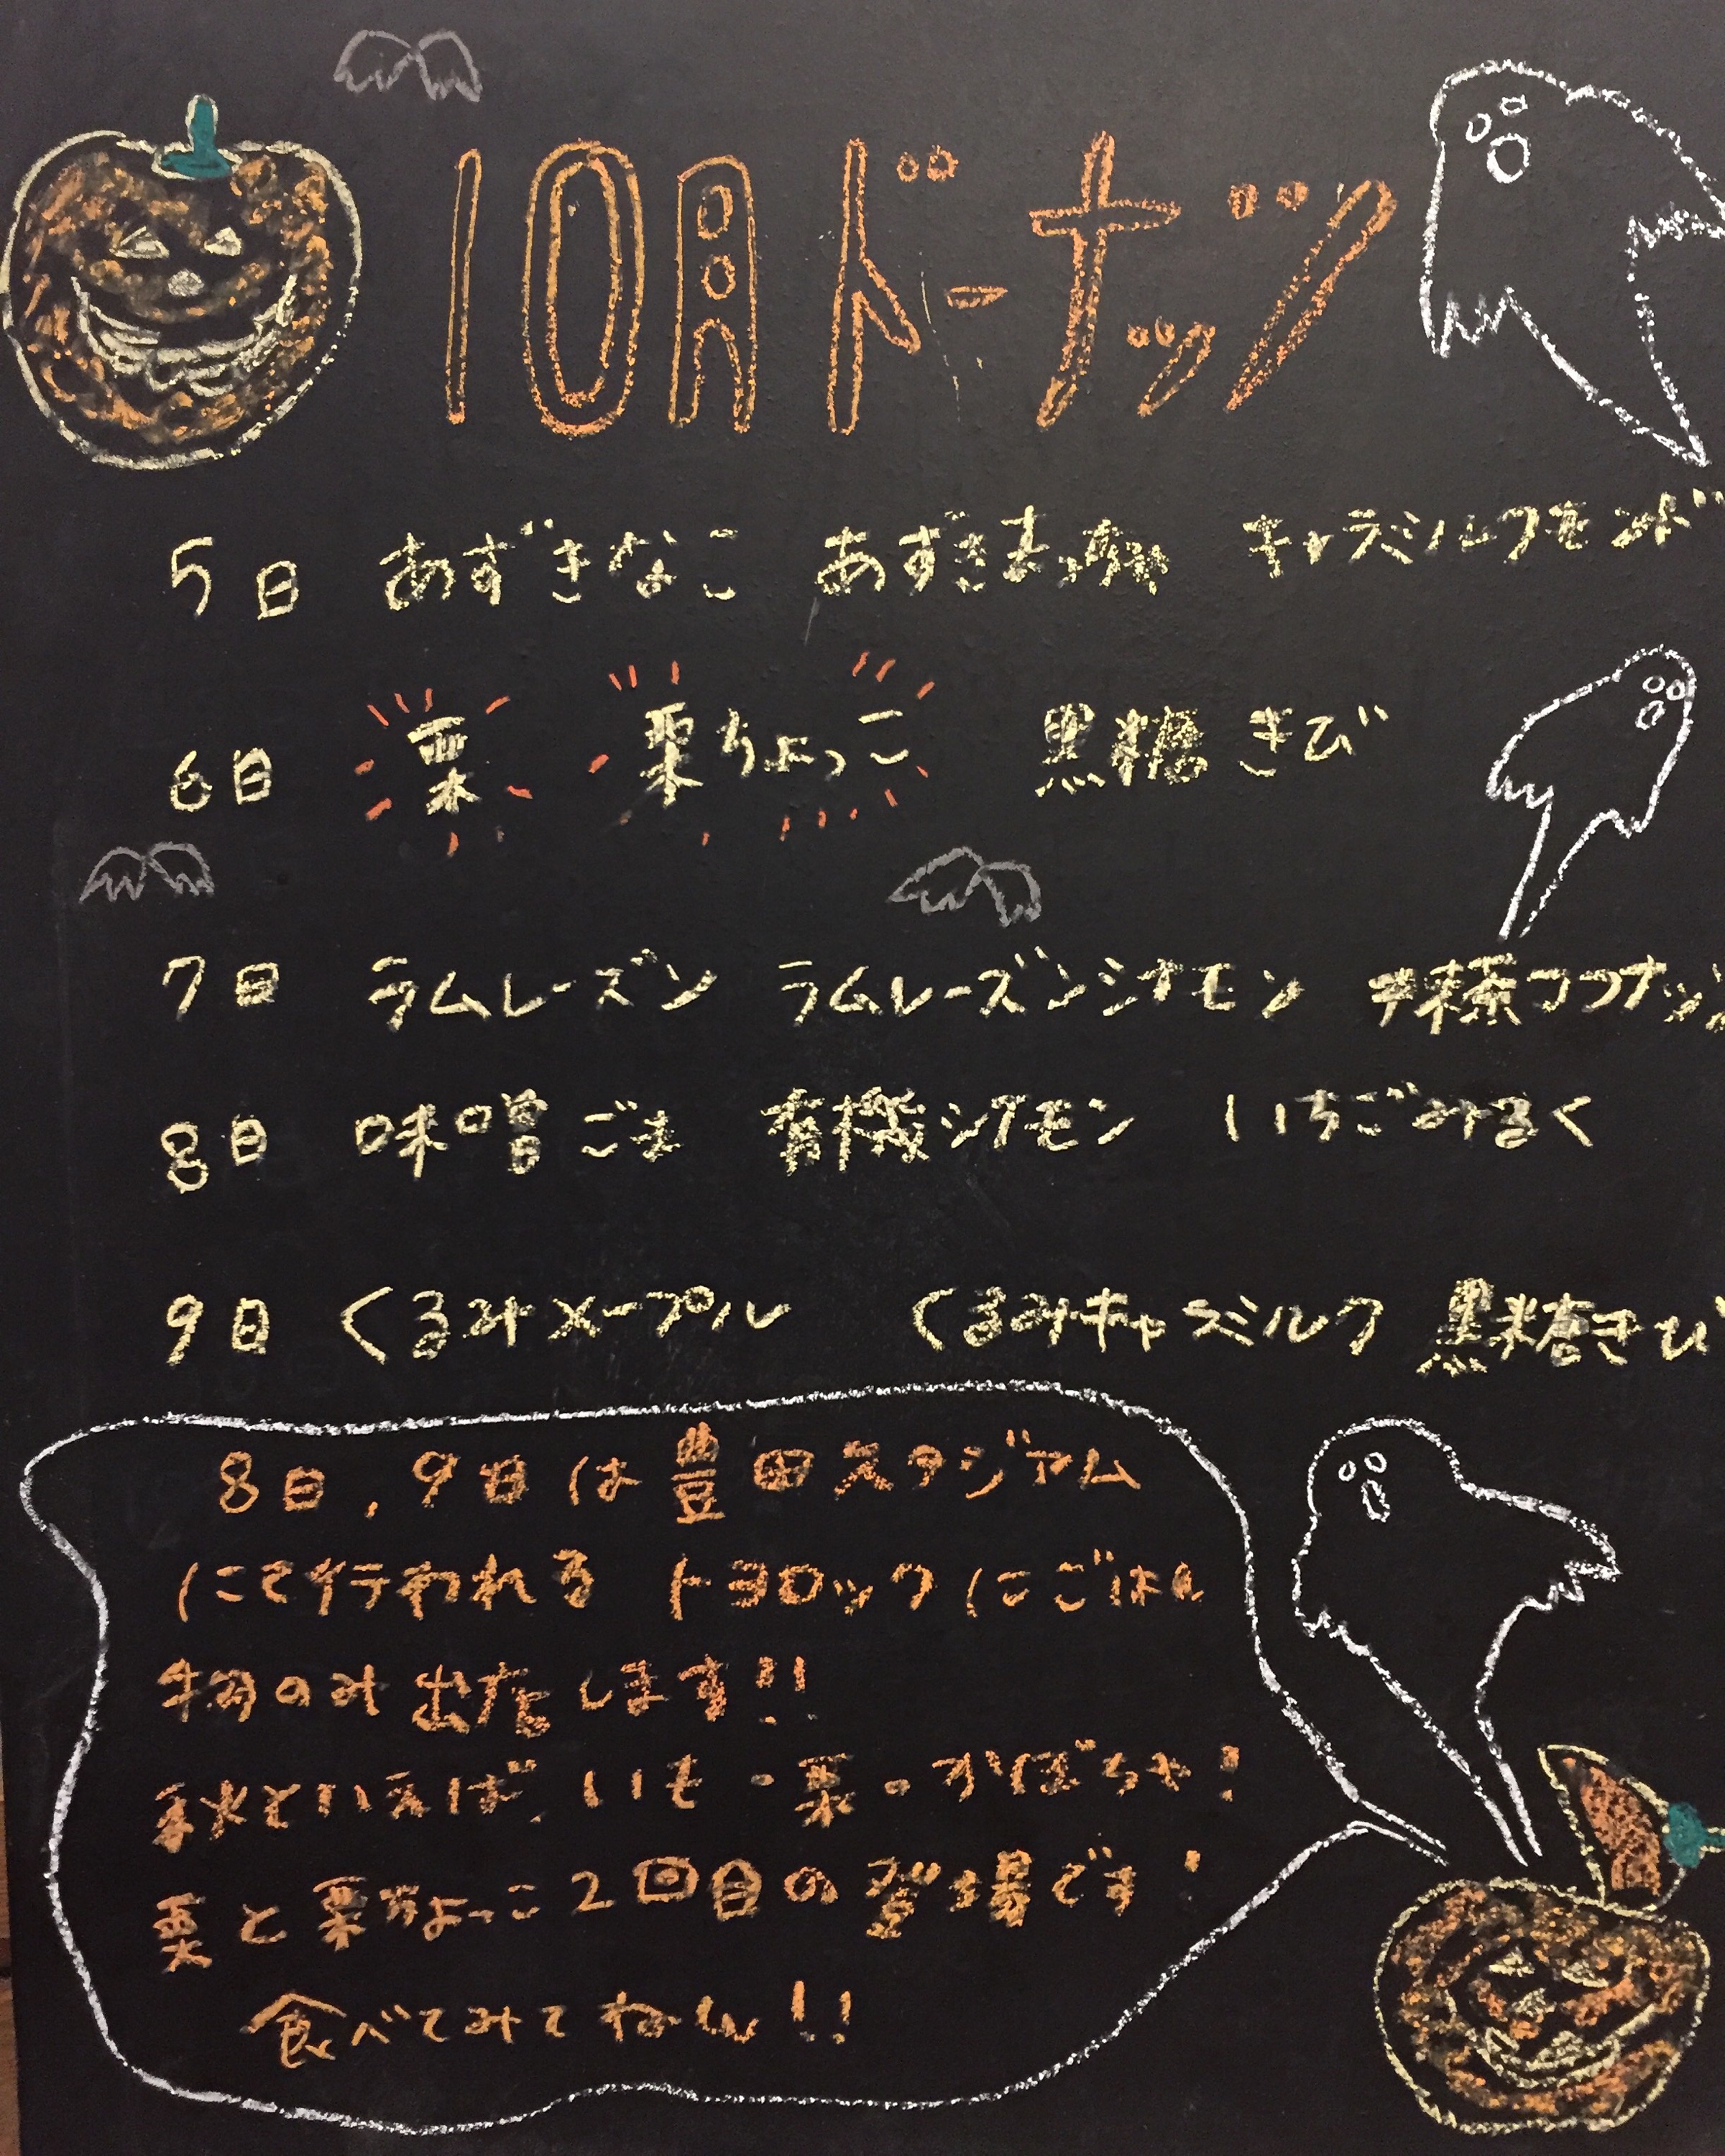 10月ドーナッツ
5日 あずきなこ あずき抹茶 キャラミルクモンド
6日 栗 栗ちょっこ 黒糖きび
7日 ラムレーズン ラムレーズンシナモン 抹茶ココナッツ
8日 味噌ごま 有機シナモン いちごみるく
9日 くるみメープル くるみキャラミルク 黒糖きび
8日，9日は豊田スタジアム
にて行われる トヨロックにごはん
物のみ出店します!!
秋といえば、いも・栗・かぼちゃ!
栗と栗ちょっこ2回目の登場です!
食べてみてねん!!